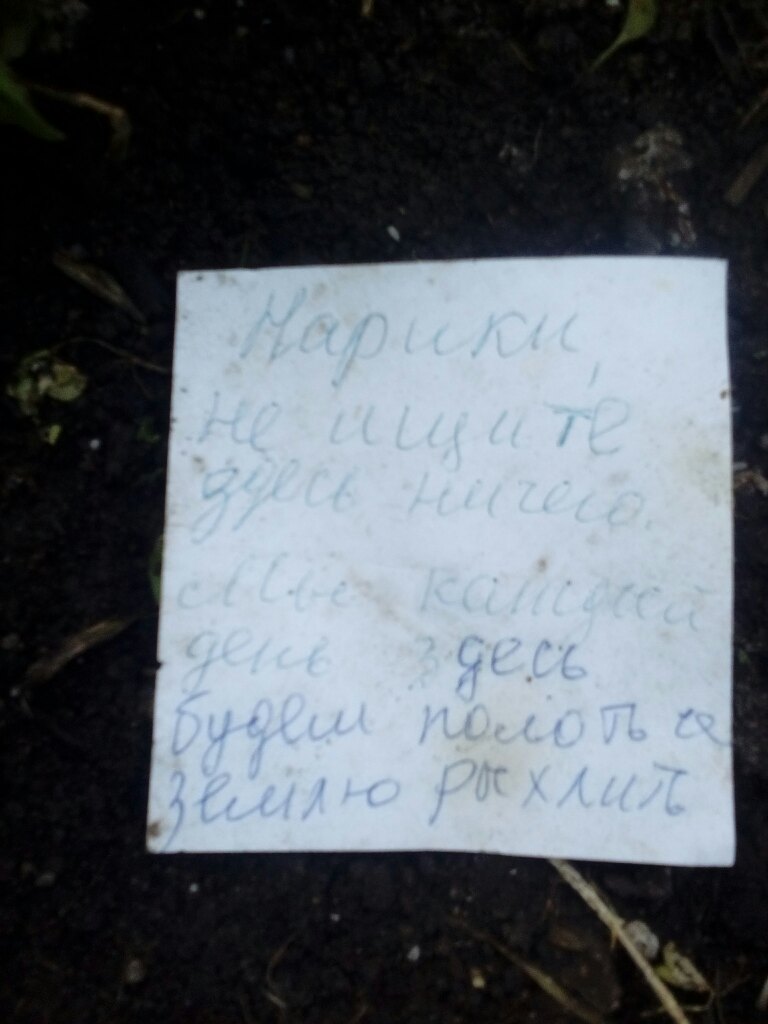 Нарики,
не ищите
здесь ничего.
Мы каждый
день здесь
будем полоть и
землю рыхлить